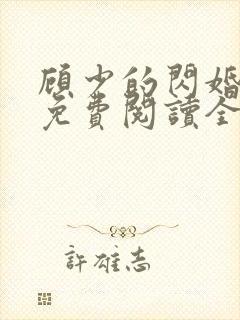 顾少的閃婚
免費閱讀全
許雄志